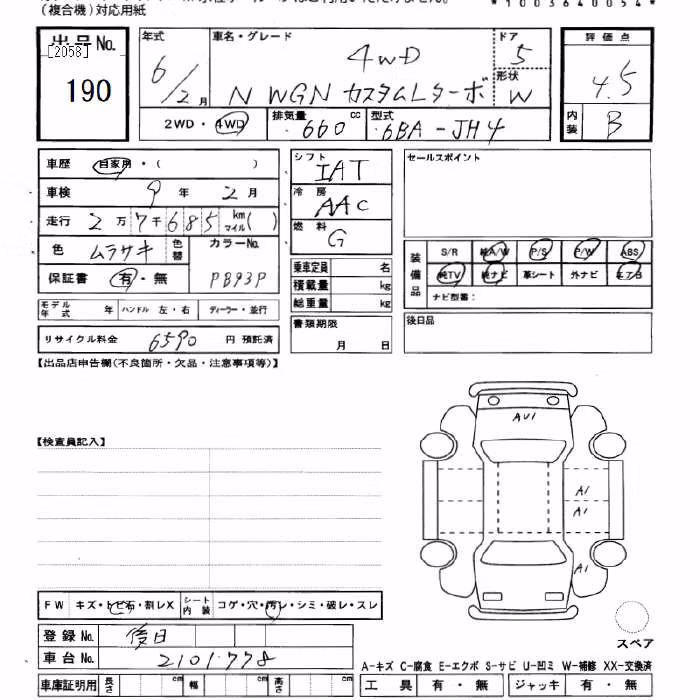 (複合機)対応用紙
*1003640054*
出品No.
[2058]
190
年式
6/2月
車名・グレード
4WD
N WGN カスタムLターボ
ドア
5
形状
W
評価点
4.5
内装
B
2WD・4WD
排気量 660 cc
型式 6BA-JH4
車歴 自家用・( )
車検 9年 2月
走行 2万7千685 km マイル( )
色 ムラサキ 色替
カラーNo.
PB93P
保証書 有・無
モデル年式 年 ハンドル 左・右 ディーラー・並行
リサイクル料金 6590 円 預託済
シフト
IAT
冷房
AAC
燃料
G
乗車定員 名
積載量 kg
総重量 kg
書類期限
月 日
セールスポイント
装備品
S/R 純A/W P/S P/W ABS
純TV 純ナビ 革シート 外ナビ エアB
ナビ型番:
後日品
【出品店申告欄(不良箇所・欠品・注意事項等)】
【検査員記入】
AU1
A1
A1
A1
スペア
FW キズ・トビ石・割レX
シート内装 コゲ・穴・汚レ・シミ・破レ・スレ
登録No. 後日
車台No. 2101778
車庫証明用 長さ cm 幅 cm 高さ cm
A-キズ C-腐食 E-エクボ S-サビ U-凹ミ W-補修 XX-交換済
工具 有・無 ジャッキ 有・無